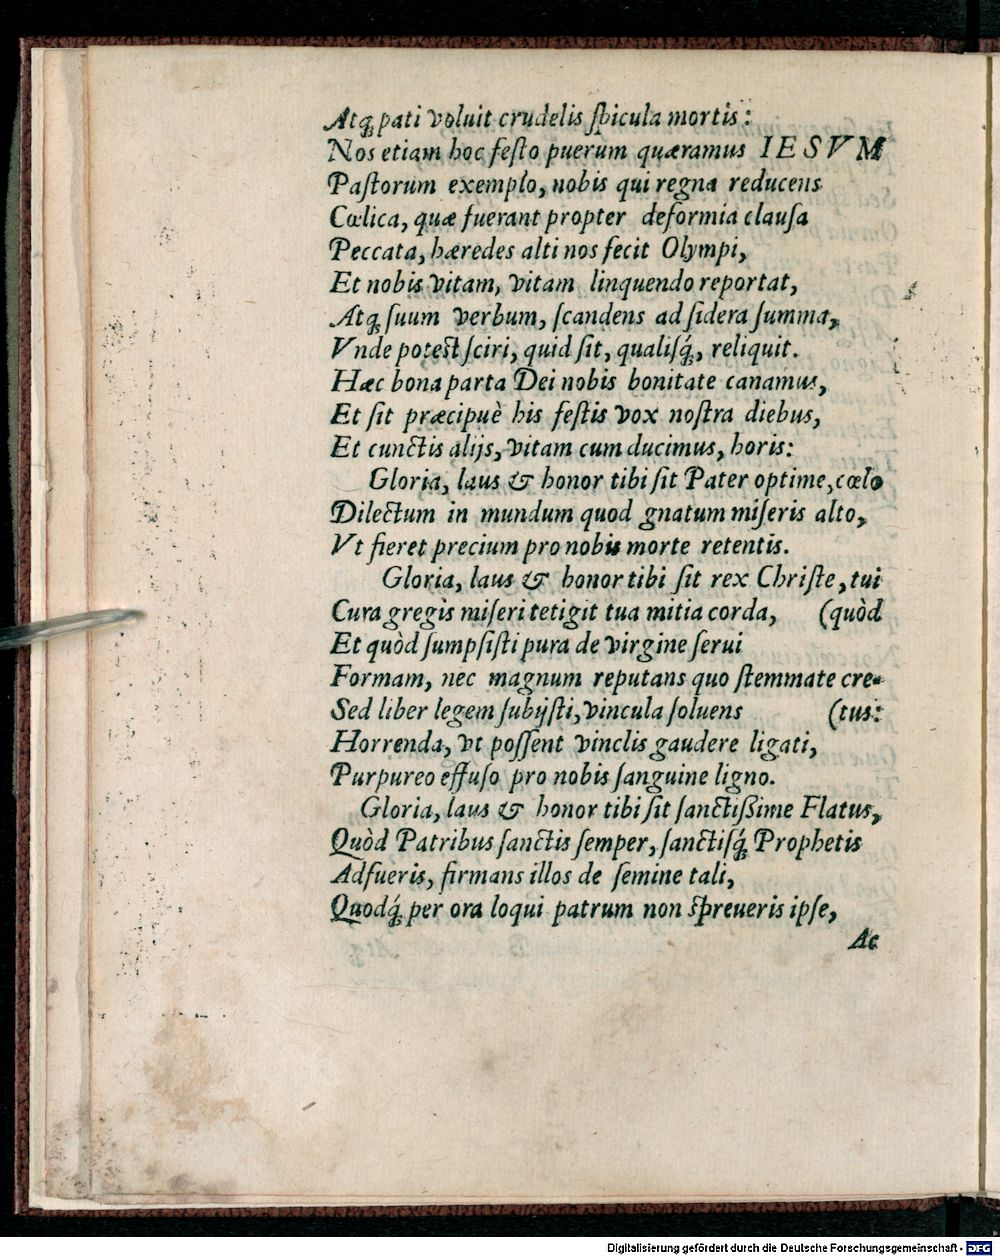 Atq́ pati voluit crudelis spicula mortis:
Nos etiam hoc festo puerum quæramus IESVM
Pastorum exemplo, nobis qui regna reducens
Cœlica, quæ fuerant propter deformia clausa
Peccata, hæredes alti nos fecit Olympi,
Et nobis vitam, vitam linquendo reportat,
Atq́ suum verbum, scandens ad sidera summa,
Vnde potest sciri, quid sit, qualisq́, reliquit.
Hæc bona parta Dei nobis bonitate canamus,
Et sit præcipuè his festis vox nostra diebus,
Et cunctis alijs, vitam cum ducimus, horis:
Gloria, laus & honor tibi sit Pater optime, cœlo
Dilectum in mundum quod gnatum miseris alto,
Vt fieret precium pro nobis morte retentis.
Gloria, laus & honor tibi sit rex Christe, tui
Cura gregis miseri tetigit tua mitia corda, (quòd
Et quòd sumpsisti pura de virgine serui
Formam, nec magnum reputans quo stemmate cre-
Sed liber legem subijsti, vincula soluens (tus:
Horrenda, vt possent vinclis gaudere ligati,
Purpureo effuso pro nobis sanguine ligno.
Gloria, laus & honor tibi sit sanctissime Flatus,
Quòd Patribus sanctis semper, sanctisq́ Prophetis
Adfueris, firmans illos de semine tali,
Quodq́ per ora loqui patrum non spreueris ipse,
Ac
Digitalisierung gefördert durch die Deutsche Forschungsgemeinschaft - DFG